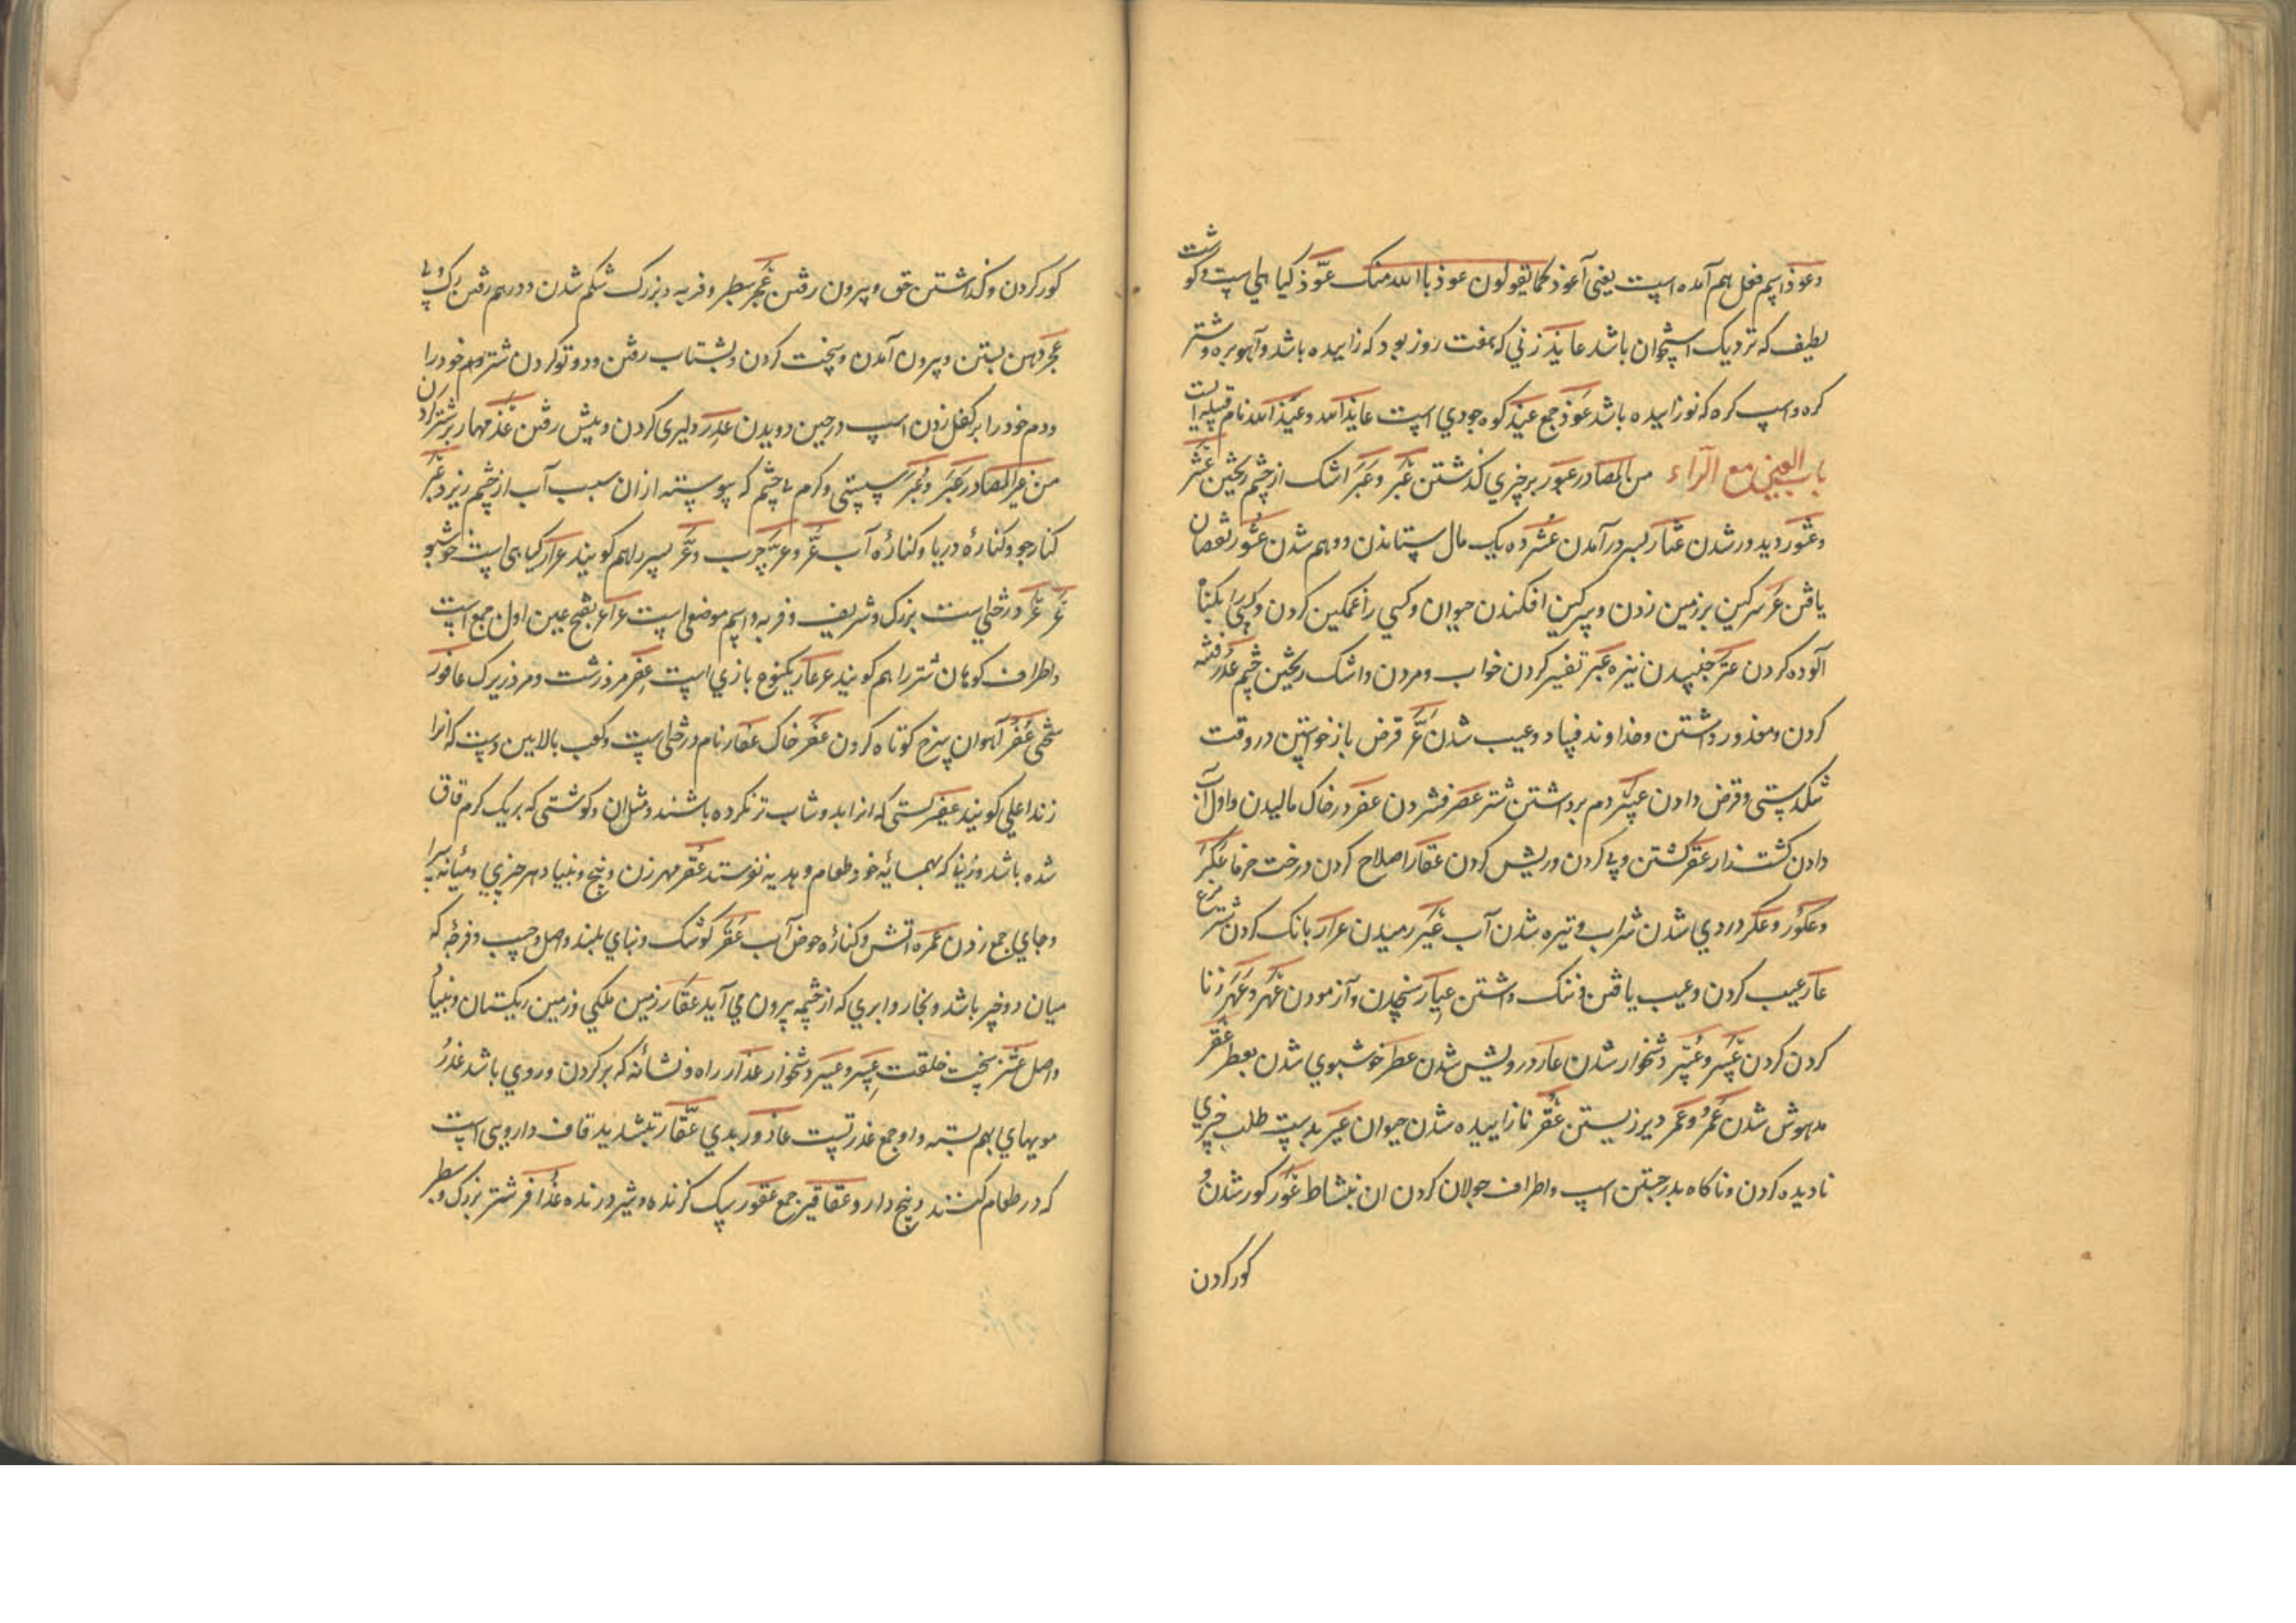 وعوذ اسم فعل هم آمده است یعنی آعوذ کما یقولون عوذ باالله منک عوّذ کیاهی است وکوشت
لطیف که نزدیک استخوان باشد عایذ زنی که هفت روز بود که زاییده باشد وآهو بره وشتر
کره واسپ کره که نوزاییده باشد عوذ جمع عیذ کوه جودی است عایذالله وعیذالله نام قبیله است
باب العین مع الرّاء من المصادر عبور برچیزی کذشتن عَبْر وعَبَر اشک از چشم ریختن عثر
وعثور دیدور شدن عثار بسر درآمدن عشر ده یک مال ستاندن ودهم شدن عشور نقصان
یافتن عر سرکین برزمین زدن وسرکین افکندن حیوان وکسی را غمکین کردن وکسی را بکناه
آلوده کردن عتر جنبیدن نیزه عبر تفسیر کردن خواب ومردن واشک ریختن چشم عذر ختنه
کردن ومعذور داشتن وخداوند فساد وعیب شدن عُسْر قرض بازخواستن در وقت
تنکدستی وقرض دادن عسر دم برداشتن شتر عصر فشردن عفر درخاک مالیدن واول آب
دادن کشتزار عقر کشتن وپی کردن وریش کردن عقار اصلاح کردن درخت خرما عکر
وعکور وعکر دردی شدن شراب وتیره شدن آب عیر رمیدن عرار بانک کردن شترمرغ
عار عیب کردن وعیب یافتن وننک داشتن عیار سنجیدن وآزمودن عهر وعهر زنا
کردن کردن عسر وعسر دشخوار شدن عار درویش شدن عطر خوشبوی شدن بعطر عقر
مدهوش شدن عمر وعمر دیر زیستن عقر نازاییده شدن حیوان عسر بدست طلب چیزی
نادیده کردن وناکاه بدرجستن اسپ واطراف جولان کردن ان بنشاط عور کور شدن و
کور کردن
کور کردن وکذاشتن حق وبیرون رفتن عجر سطبر وفربه وبزرک شکم شدن ودرهم رفتن رک وپی
عجر دهن بستن وبیرون آمدن وسخت کردن وبشتاب رفتن ودوتو کردن شتر دم خود را
ودم خود را برکفل زدن اسپ درحین دویدن عدر دلیری کردن وپیش رفتن عذر مهار برشتر کردن
من غیر المصادر عَبَر وعُبْر سستی وکرمی چشم که پیوسته ازان سبب آب از چشم ریزد عبر
کنار جو وکنارهٔ دریا وکنارهٔ آب عُرّ وعرّ چرب وعر پسر را هم کویند عرار کیاهی است خوشبو
عر عر درختی است بزرک وشریف وفربه واسم موضعی است عراعر بفتح عین اول جمع است
واطراف کوهان شتر را هم کویند عرعار یکنوع بازی است عِفر مرد زشت ومرد زیرک عافور
سختی عفر آهوان سرخ کوتاه کردن عفر خاک عفار نام درختی است وچوب بالایین دست که انرا
زند اعلی کویند عفیر پستی که انرا بدوشاب تر نکرده باشند ومثل ان وکوشتی که بریک کرم قاق
شده باشد وزنیکه که بهمسایه خود طعام وهدیه نفرستد عقر مهر زن وبیخ وبنیاد هر چیزی ومیانه سرا
وجای جمع زدن عمره اتش وکنارهٔ حوض آب عقر کوشک وبنای بلند واصل وچسب وفرجه که
میان دوچیز باشد وبخار وابری که از چشمه بیرون می آید عقار زمین ملکی وزمین ریکستان وبنیاد
واصل عشنز سخت خلقت عسر وعسیر دشخوار عذار راه ونشانه که برکردن وروی باشد عذر
مویهای بهم بسته واو جمع عذرتست عاذور بدی عقّار بتشدید قاف دارویی است
که در طعام کنند وبیخ دارو عقاقیر جمع عقور سک کزنده وشیر درنده عذافر شتر بزرک وسطبر